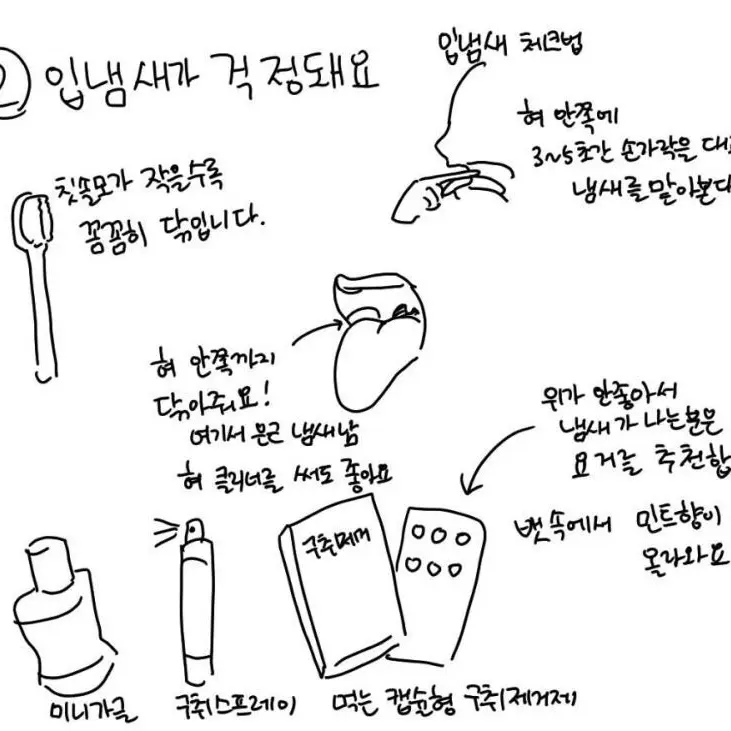 ② 입냄새가 걱정돼요
입냄새 체크법
혀 안쪽에
3~5초간 손가락을
냄새를 맡아본다
칫솔모가 작을수록
꼼꼼히 닦입니다.
혀 안쪽까지
닦아줘요!
여기서 은근 냄새남
혀 클리너를 써도 좋아요
위가 안좋아서
냄새가 나는분은
요거를
뱃속에서 민트향이
올라와요
구취제거
미니가글
구취스프레이
먹는 캡슐형 구취제거제